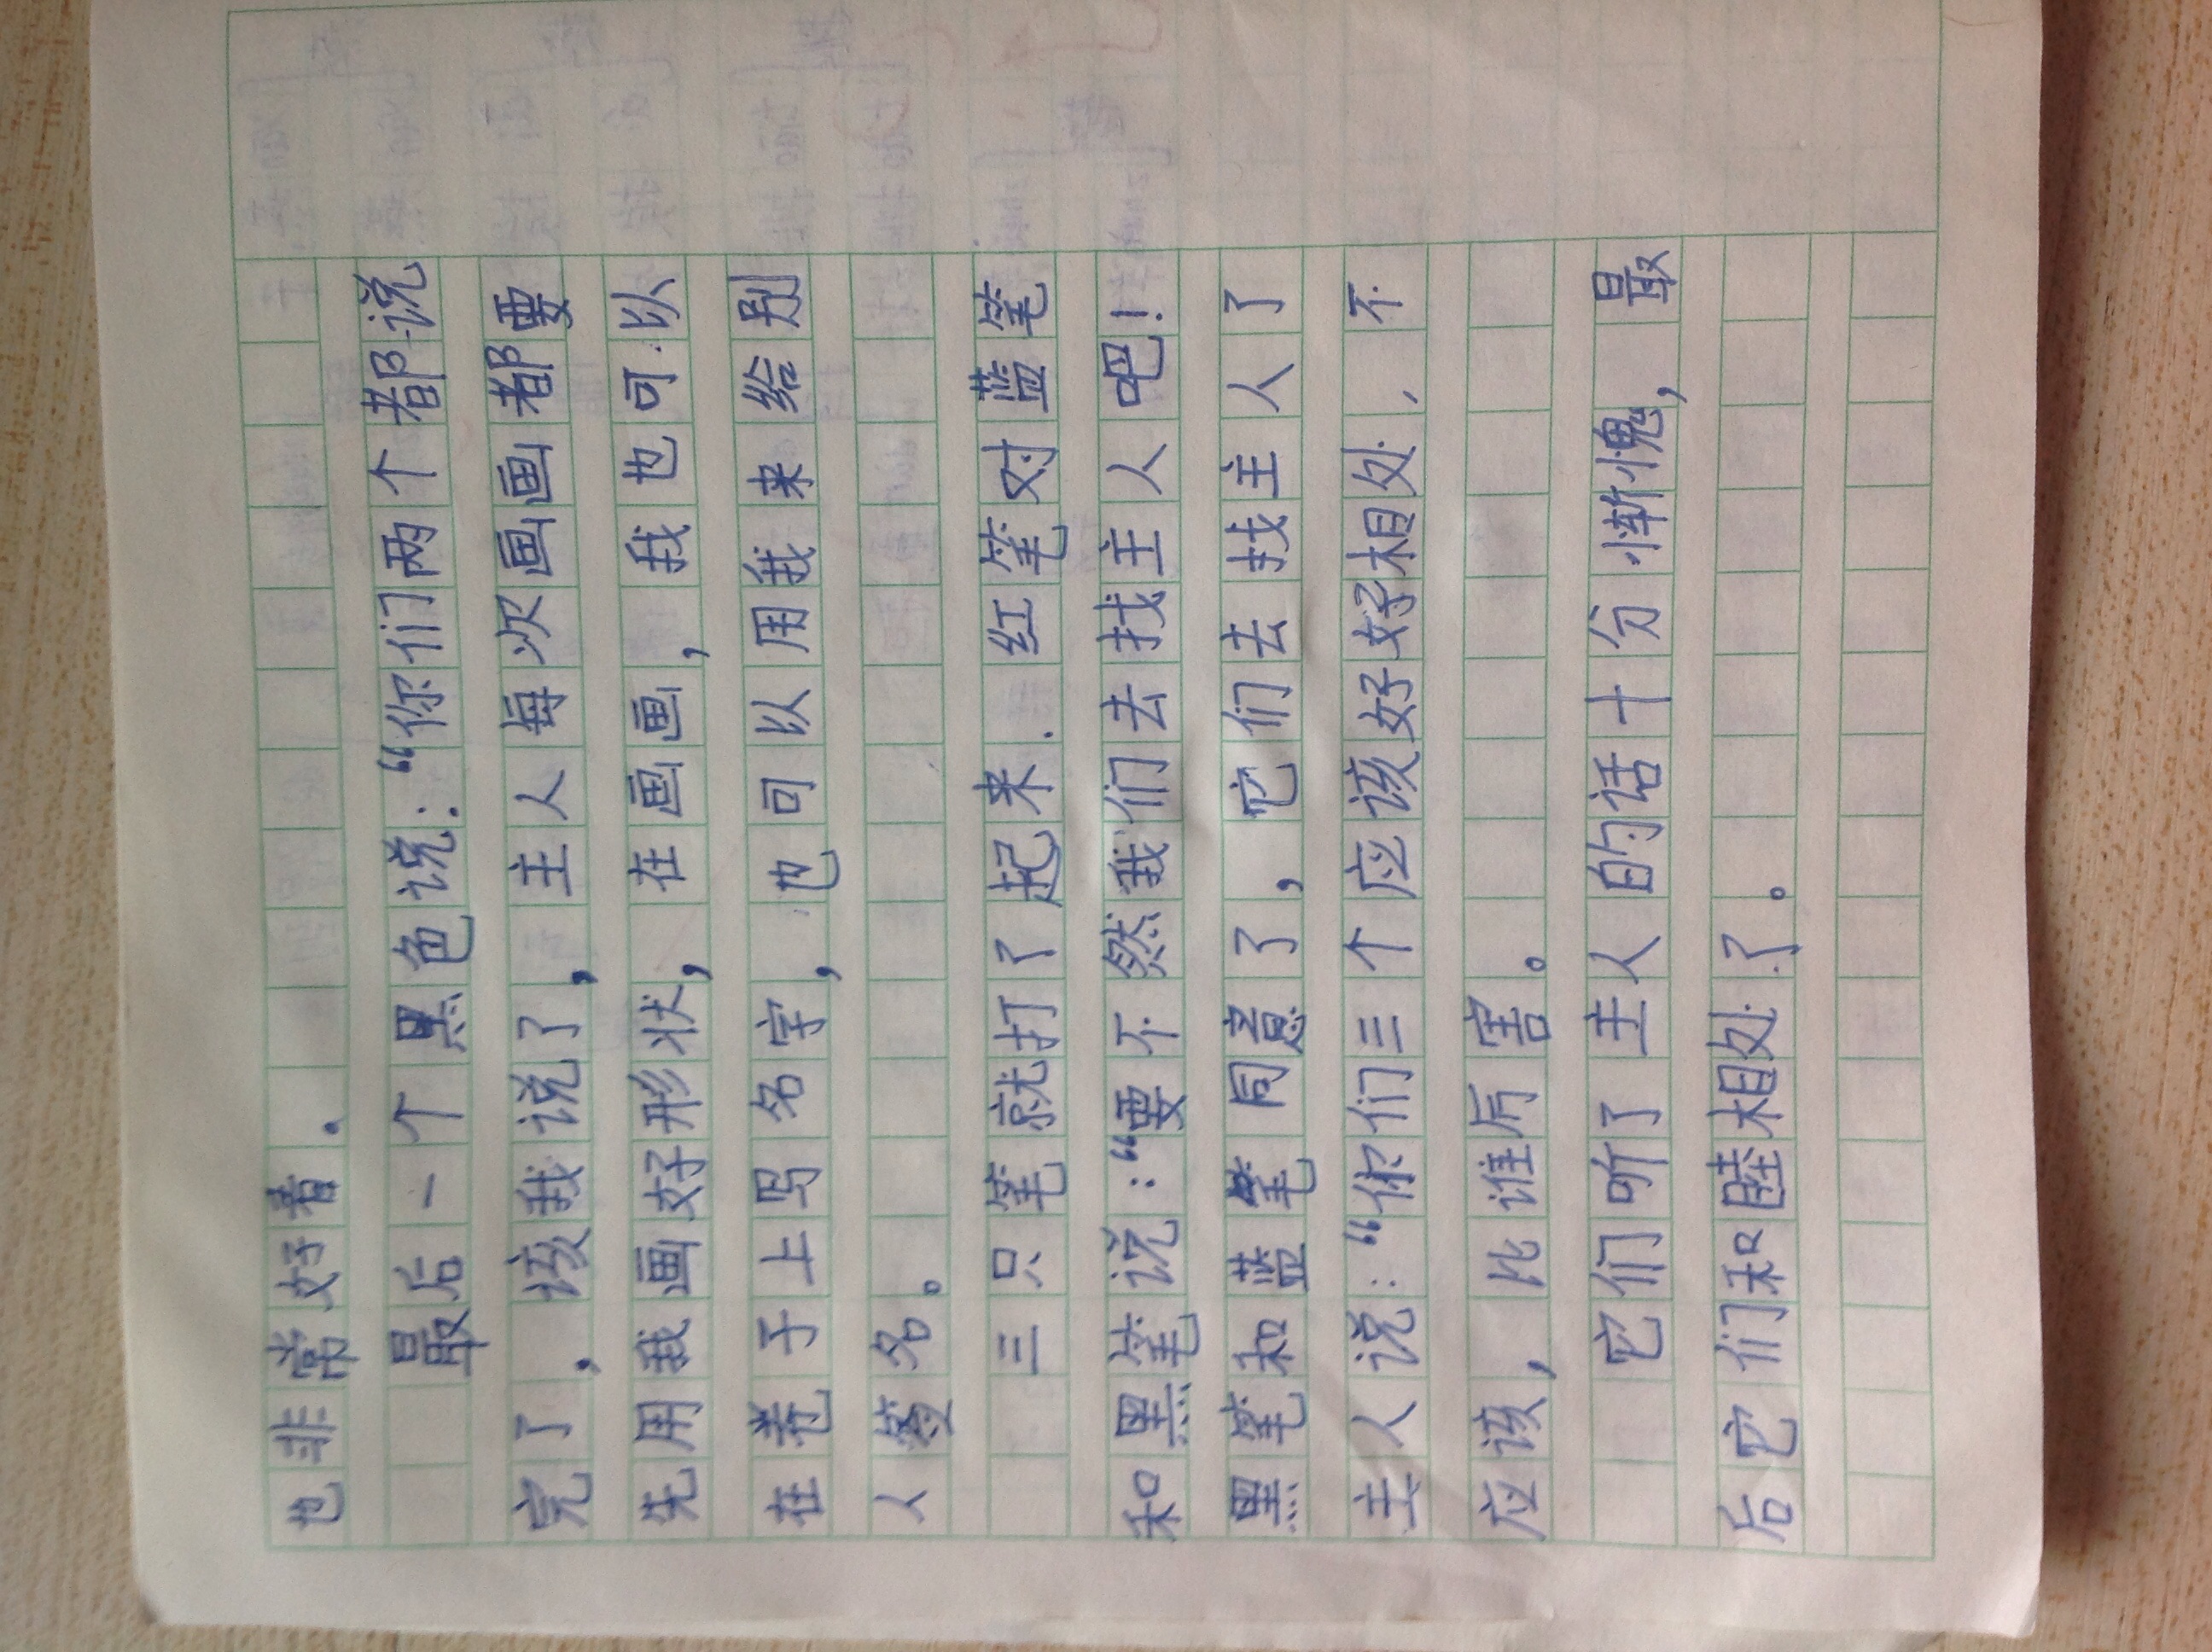 也非常好看.
最后一个黑色说:“你们两个都说
完了,该我说了,主人每次画画都要
先用我画好形状,在画画,我也可以
在卷子上写名字,也可以用我来给别
人签名。
三只笔就打了起来.红笔对蓝笔
和黑笔说:“要不然我们去找主人吧!
黑笔和蓝笔同意了,它们去找主人了
主人说:“你们三个应该好好相处,不
应该,比谁厉害。
它们听了主人的话十分惭愧,最
后它们和睦相处了。